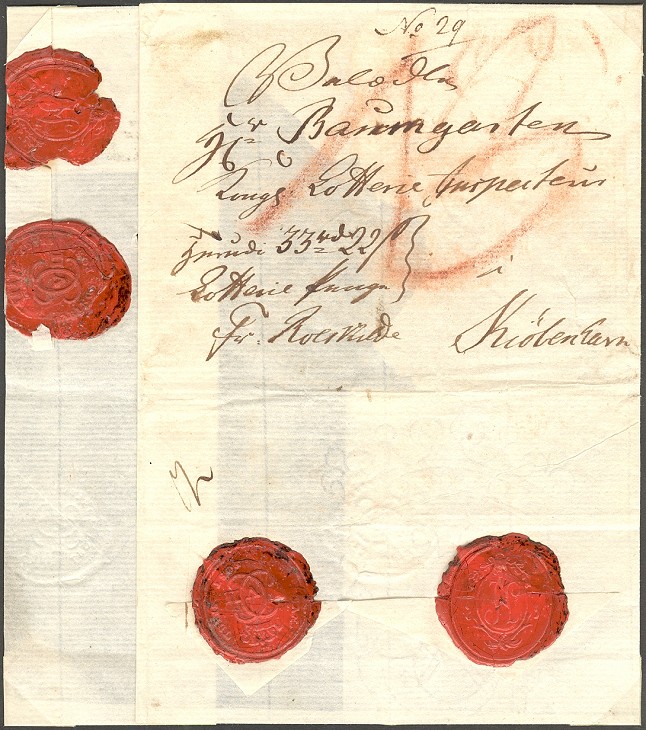 No 29
Velædle
Hr. Baumgarten
Kongl Lotterie Inspecteur
33 rd 22 s
Lotterie Penge
Fr. Roeskilde
i
Kiöbenhavn